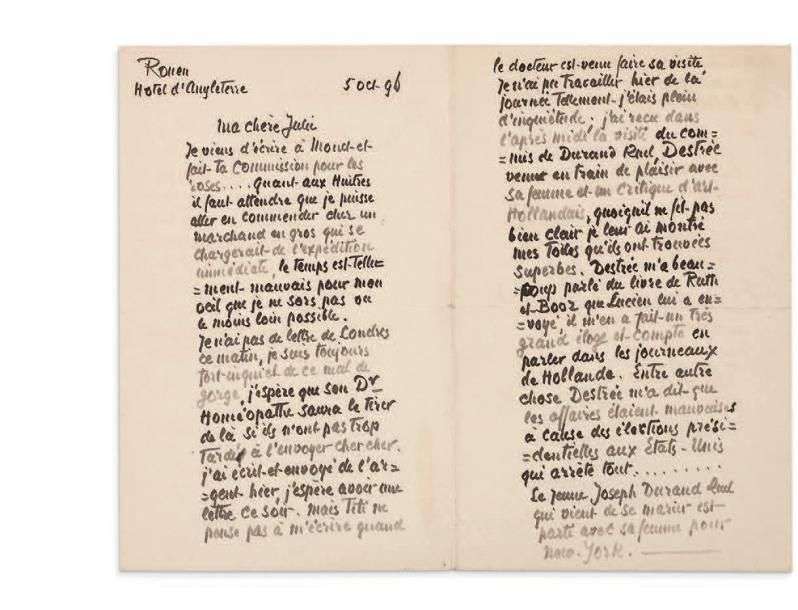 Rouen
Hotel d'Angleterre
5 oct. 96
Ma chère Julie
Je viens d'écrire à Mond-et-
fait-ta Commission pour les
roses.... Quant-aux Huitres
il faut attendre que je puisse
aller en commender chez un
marchand en gros qui se
chargerait-de l'expédition
immédiate, le temps est-telle=
=ment-mauvais pour mon
oeil que je ne sors pas ou
le moins loin possible.
Je n'ai pas de lettre de Londres
ce matin, je suis toujours
fort-inquiet de ce mal de
gorge, j'espère que son Dr
Homéopathe saura le tirer
de là si ils n'ont pas trop
Tardé à l'envoyer chercher.
j'ai ecrit-et-envoyé de l'ar=
=gent hier, j'espère avoir une
lettre ce soir. Mais Titi ne
pense pas à m'écrire quand
le docteur est-venu faire sa visite
Je n'ai pu Travailler hier de la
journée Tellement-j'étais plein
d'inquiétude. j'ai reçu dans
l'après midi la visite du com=
=mis de Durand Ruel, Destrée
venu en train de plaisir avec
sa femme et-un Critique d'art-
Hollandais, quoiqu'il ne fît-pas
bien clair je leur ai montré
mes Toiles qu'ils ont trouvées
Superbes. Destrée m'a beau=
=coup parlé du livre de Ruth
et-Booz que Lucien lui a en=
=voyé, il m'en a fait-un très
grand éloge et-compte en
parler dans les journeaux
de Hollande. Entre autre
chose Destrée m'a dit-que
les affaires étaient mauvaises
à cause des élections prési=
=dentielles aux Etats-Unis
qui arrête tout.........
Le jeune Joseph Durand Ruel
qui vient de se marier est-
parti avec sa femme pour
New-York.